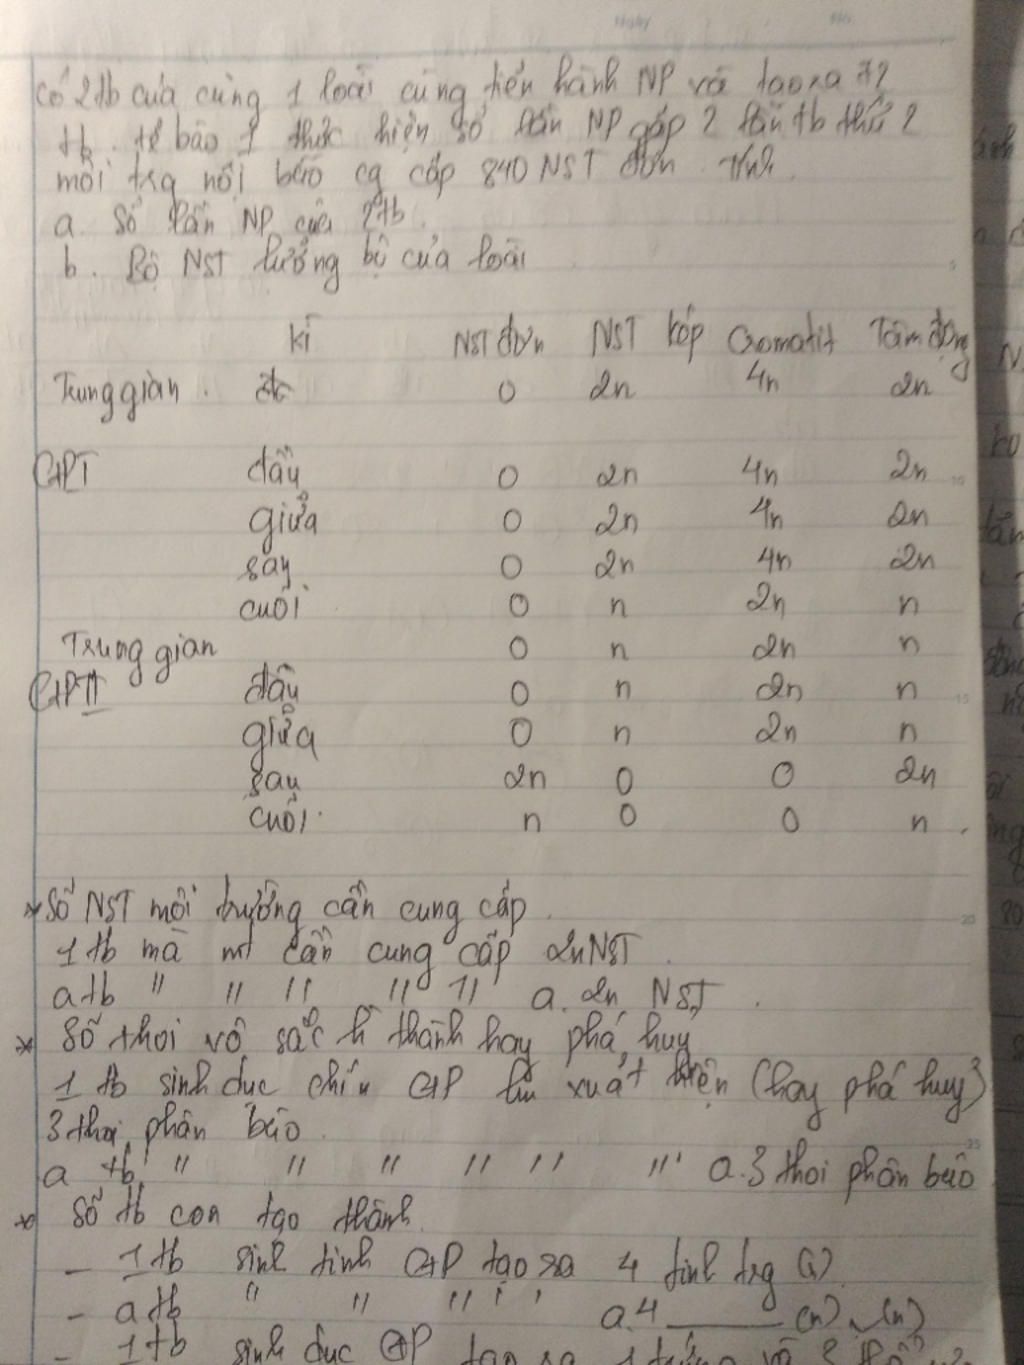 Ngày No.
Có 2 tb của cùng 1 loài cùng tiến hành NP và tạo ra 72
tb. tế bào 1 thực hiện số lần NP gấp 2 lần tb thứ 2
môi trg nội bào cg cấp 840 NST đơn. Tính
a. Số lần NP của 2 tb.
b. Bộ NST lưỡng bội của loài
kì NST đơn NST kép Cromatit Tâm động
Trung gian. 0 2n 4n 2n
GPI đầu 0 2n 4n 2n
giữa 0 2n 4n 2n
sau 0 2n 4n 2n
cuối 0 n 2n n
Trung gian 0 n 2n n
GPII đầu 0 n 2n n
giữa 0 n 2n n
sau 2n 0 0 2n
cuối n 0 0 n
* Số NST môi trường cần cung cấp.
1 tb mà mt cần cung cấp 2n NST.
a tb " " " " " a. 2n NST.
* Số thoi vô sắc h thành hay phá hủy
1 tb sinh dục chín GP lần xuất hiện (hay phá hủy)
3 thoi phân bào.
a tb " " " " " " a.3 thoi phân bào
* Số tb con tạo thành.
- 1 tb sinh tinh GP tạo ra 4 tinh trg (n)
- a tb " " " " " a.4 (n) (n)
- 1 tb sinh dục GP tạo ra 1 trứng và 3